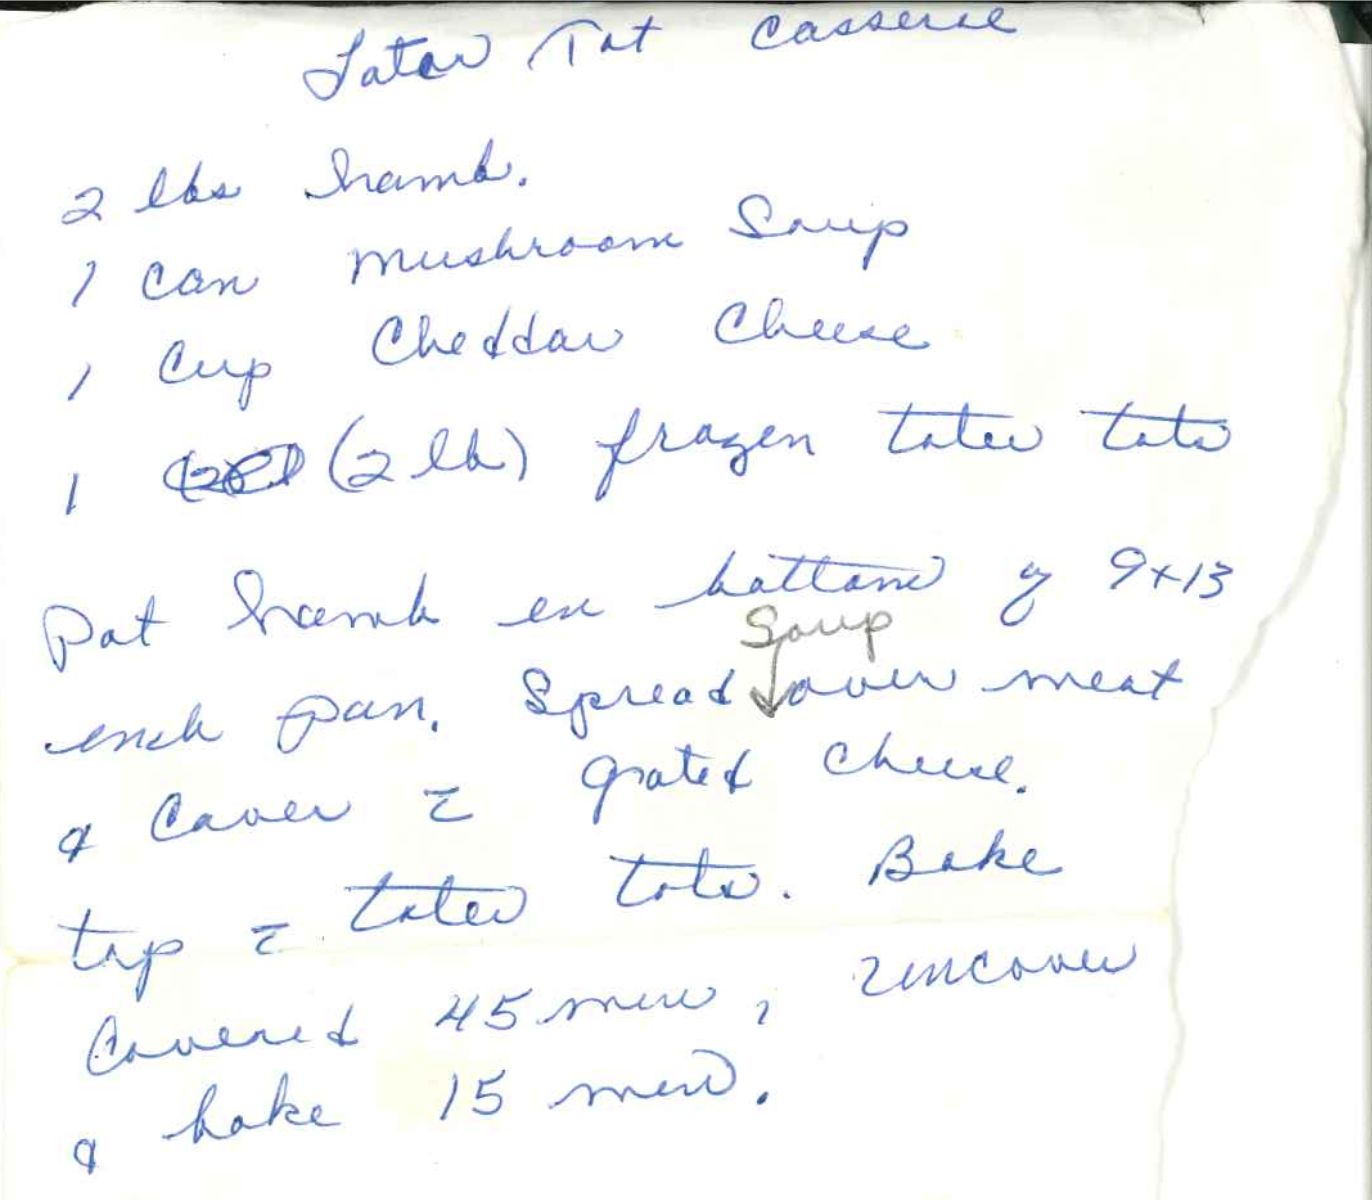 Tater Tot Casserle
2 lbs hamb.
1 can mushroom Soup
1 Cup Cheddar Cheese
1 (2 lb) frozen tater tots
Pat hamb in bottom of 9x13
Soup
inch pan. Spread over meat
& Cover c̄ grated cheese.
top c̄ tater tots. Bake
Covered 45 min, uncover
& bake 15 min.